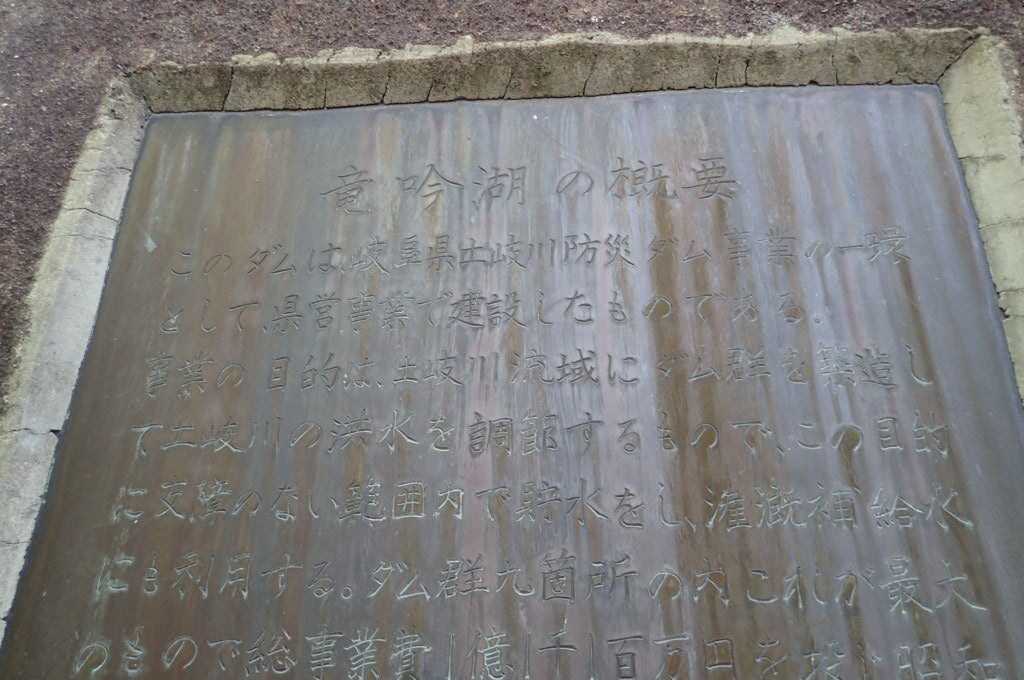 竜吟湖の概要
このダムは、岐阜県土岐川防災ダム事業の一環
として、県営事業で建設したものである。
事業の目的は、土岐川流域にダム群を築造し
て土岐川の洪水を調節するもので、この目的
に支障のない範囲内で貯水をし、灌漑補給水
にも利用する。ダム群九箇所の内これが最大
のもので総事業費1億1千1百万円を投じ昭和